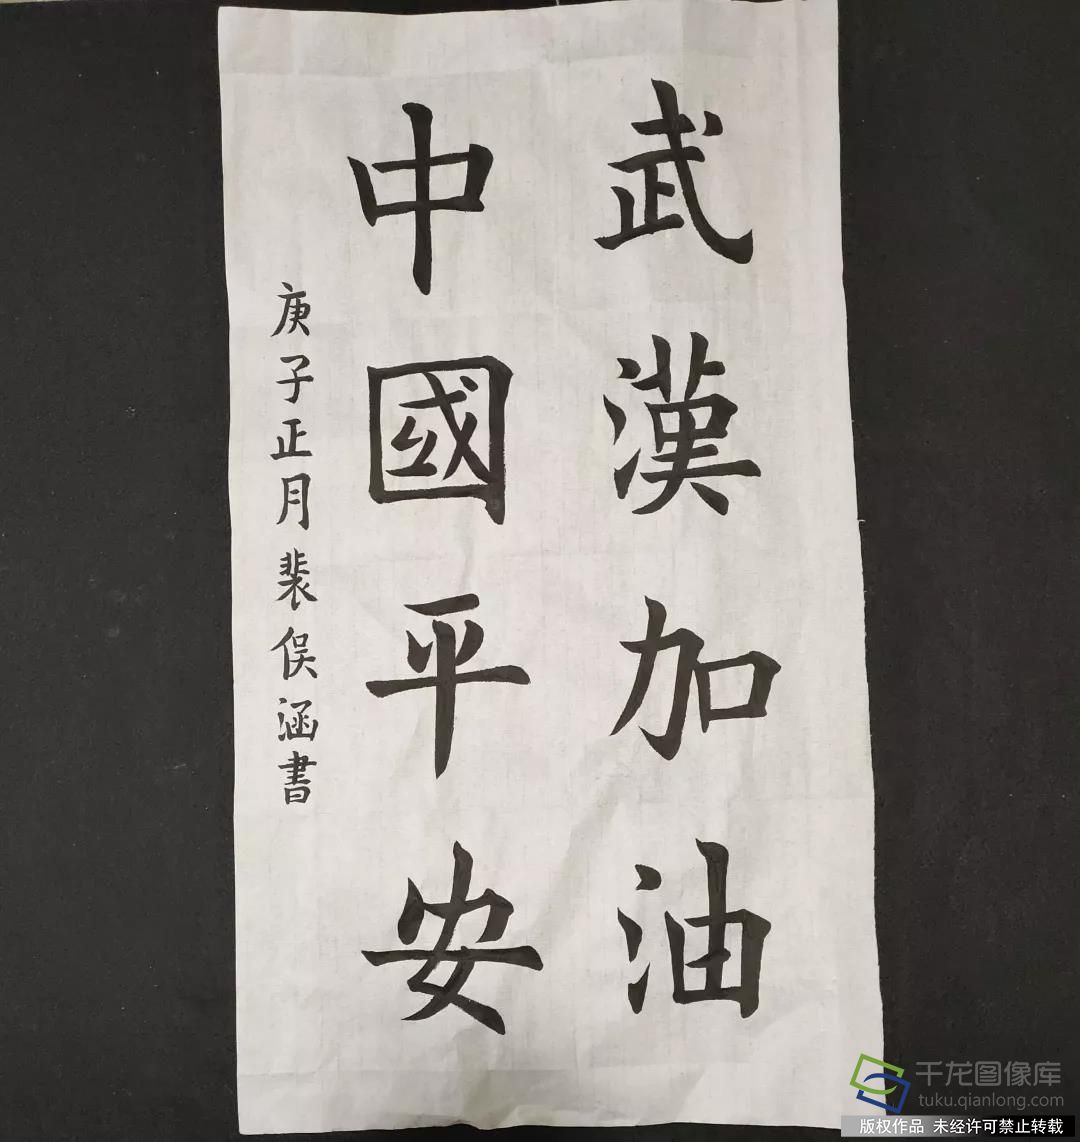 武漢加油
中國平安
庚子正月裴俣涵書
千龙图像库
tuku.qianlong.com
版权作品 未经许可禁止转载